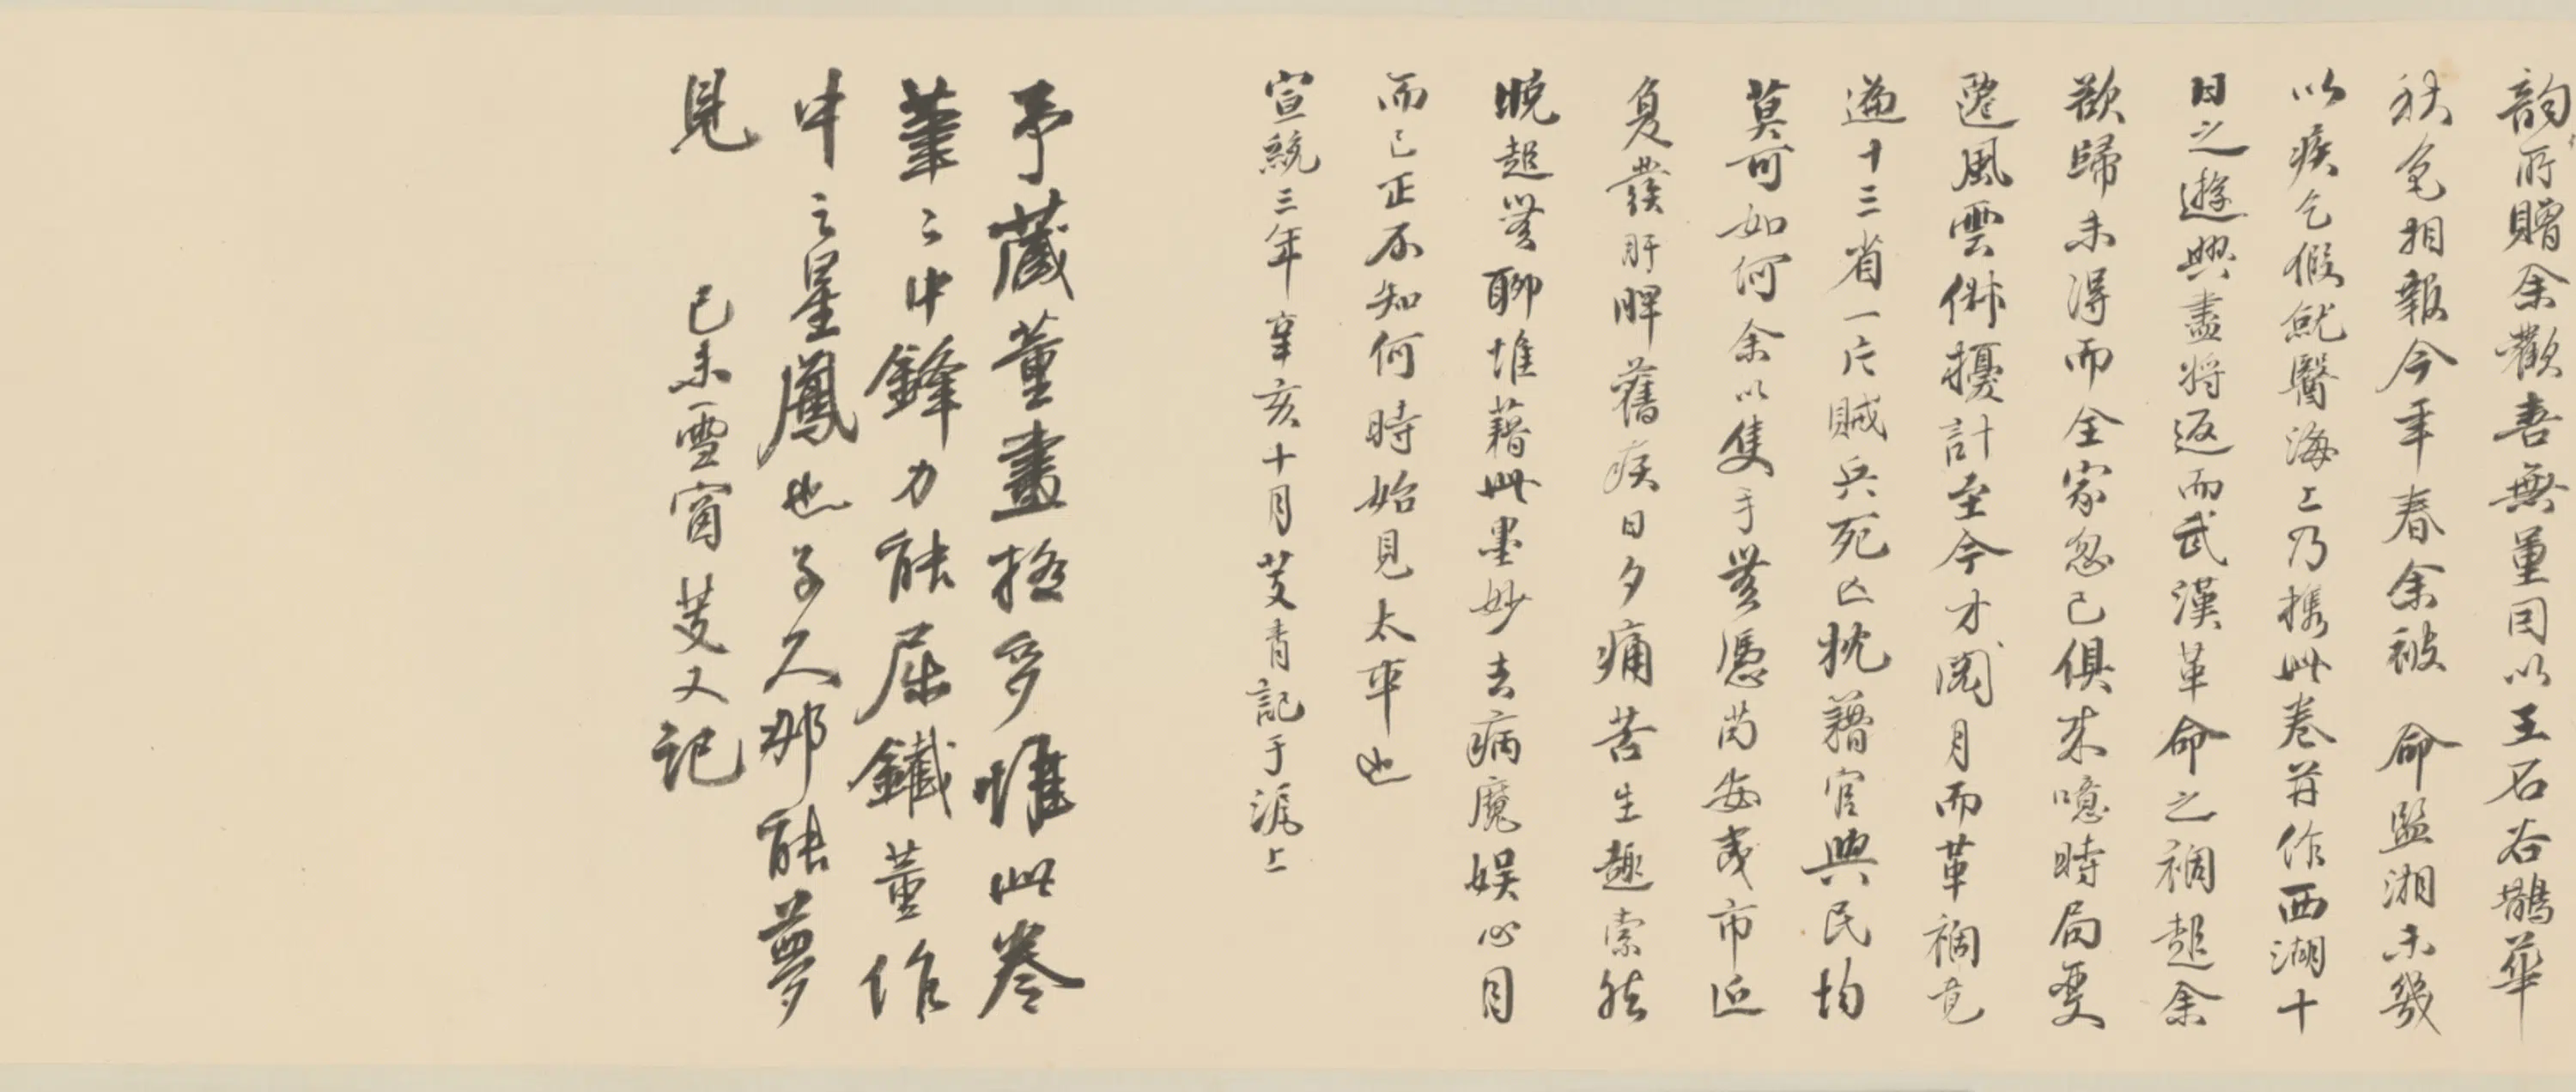 韵所贈余歡喜無量因以王石谷鵲華
秋色相報今年春余被 命監湘未幾
以疾乞假就醫海上乃攜此卷并作西湖十
日之遊興盡將返而武漢革命之禍起余
欲歸未得而全家忽已俱來噫時局變
遷風雲俶擾計至今才閱月而革禍竟
遍十三省一片賊兵死亡枕藉官與民均
莫可如何余以隻手無憑苟安夷市近
复發肝脾舊疾日夕痛苦生趣索然
晚起無聊惟藉此墨妙去病魔娱心目
而已正不知何時始見太平也
宣統三年辛亥十月芰青記于滬上
予藏董畫極多惟此卷
筆筆中鋒力能屈鐵董作
中之星鳳也子久那能夢
見 己未雪窗芰又記